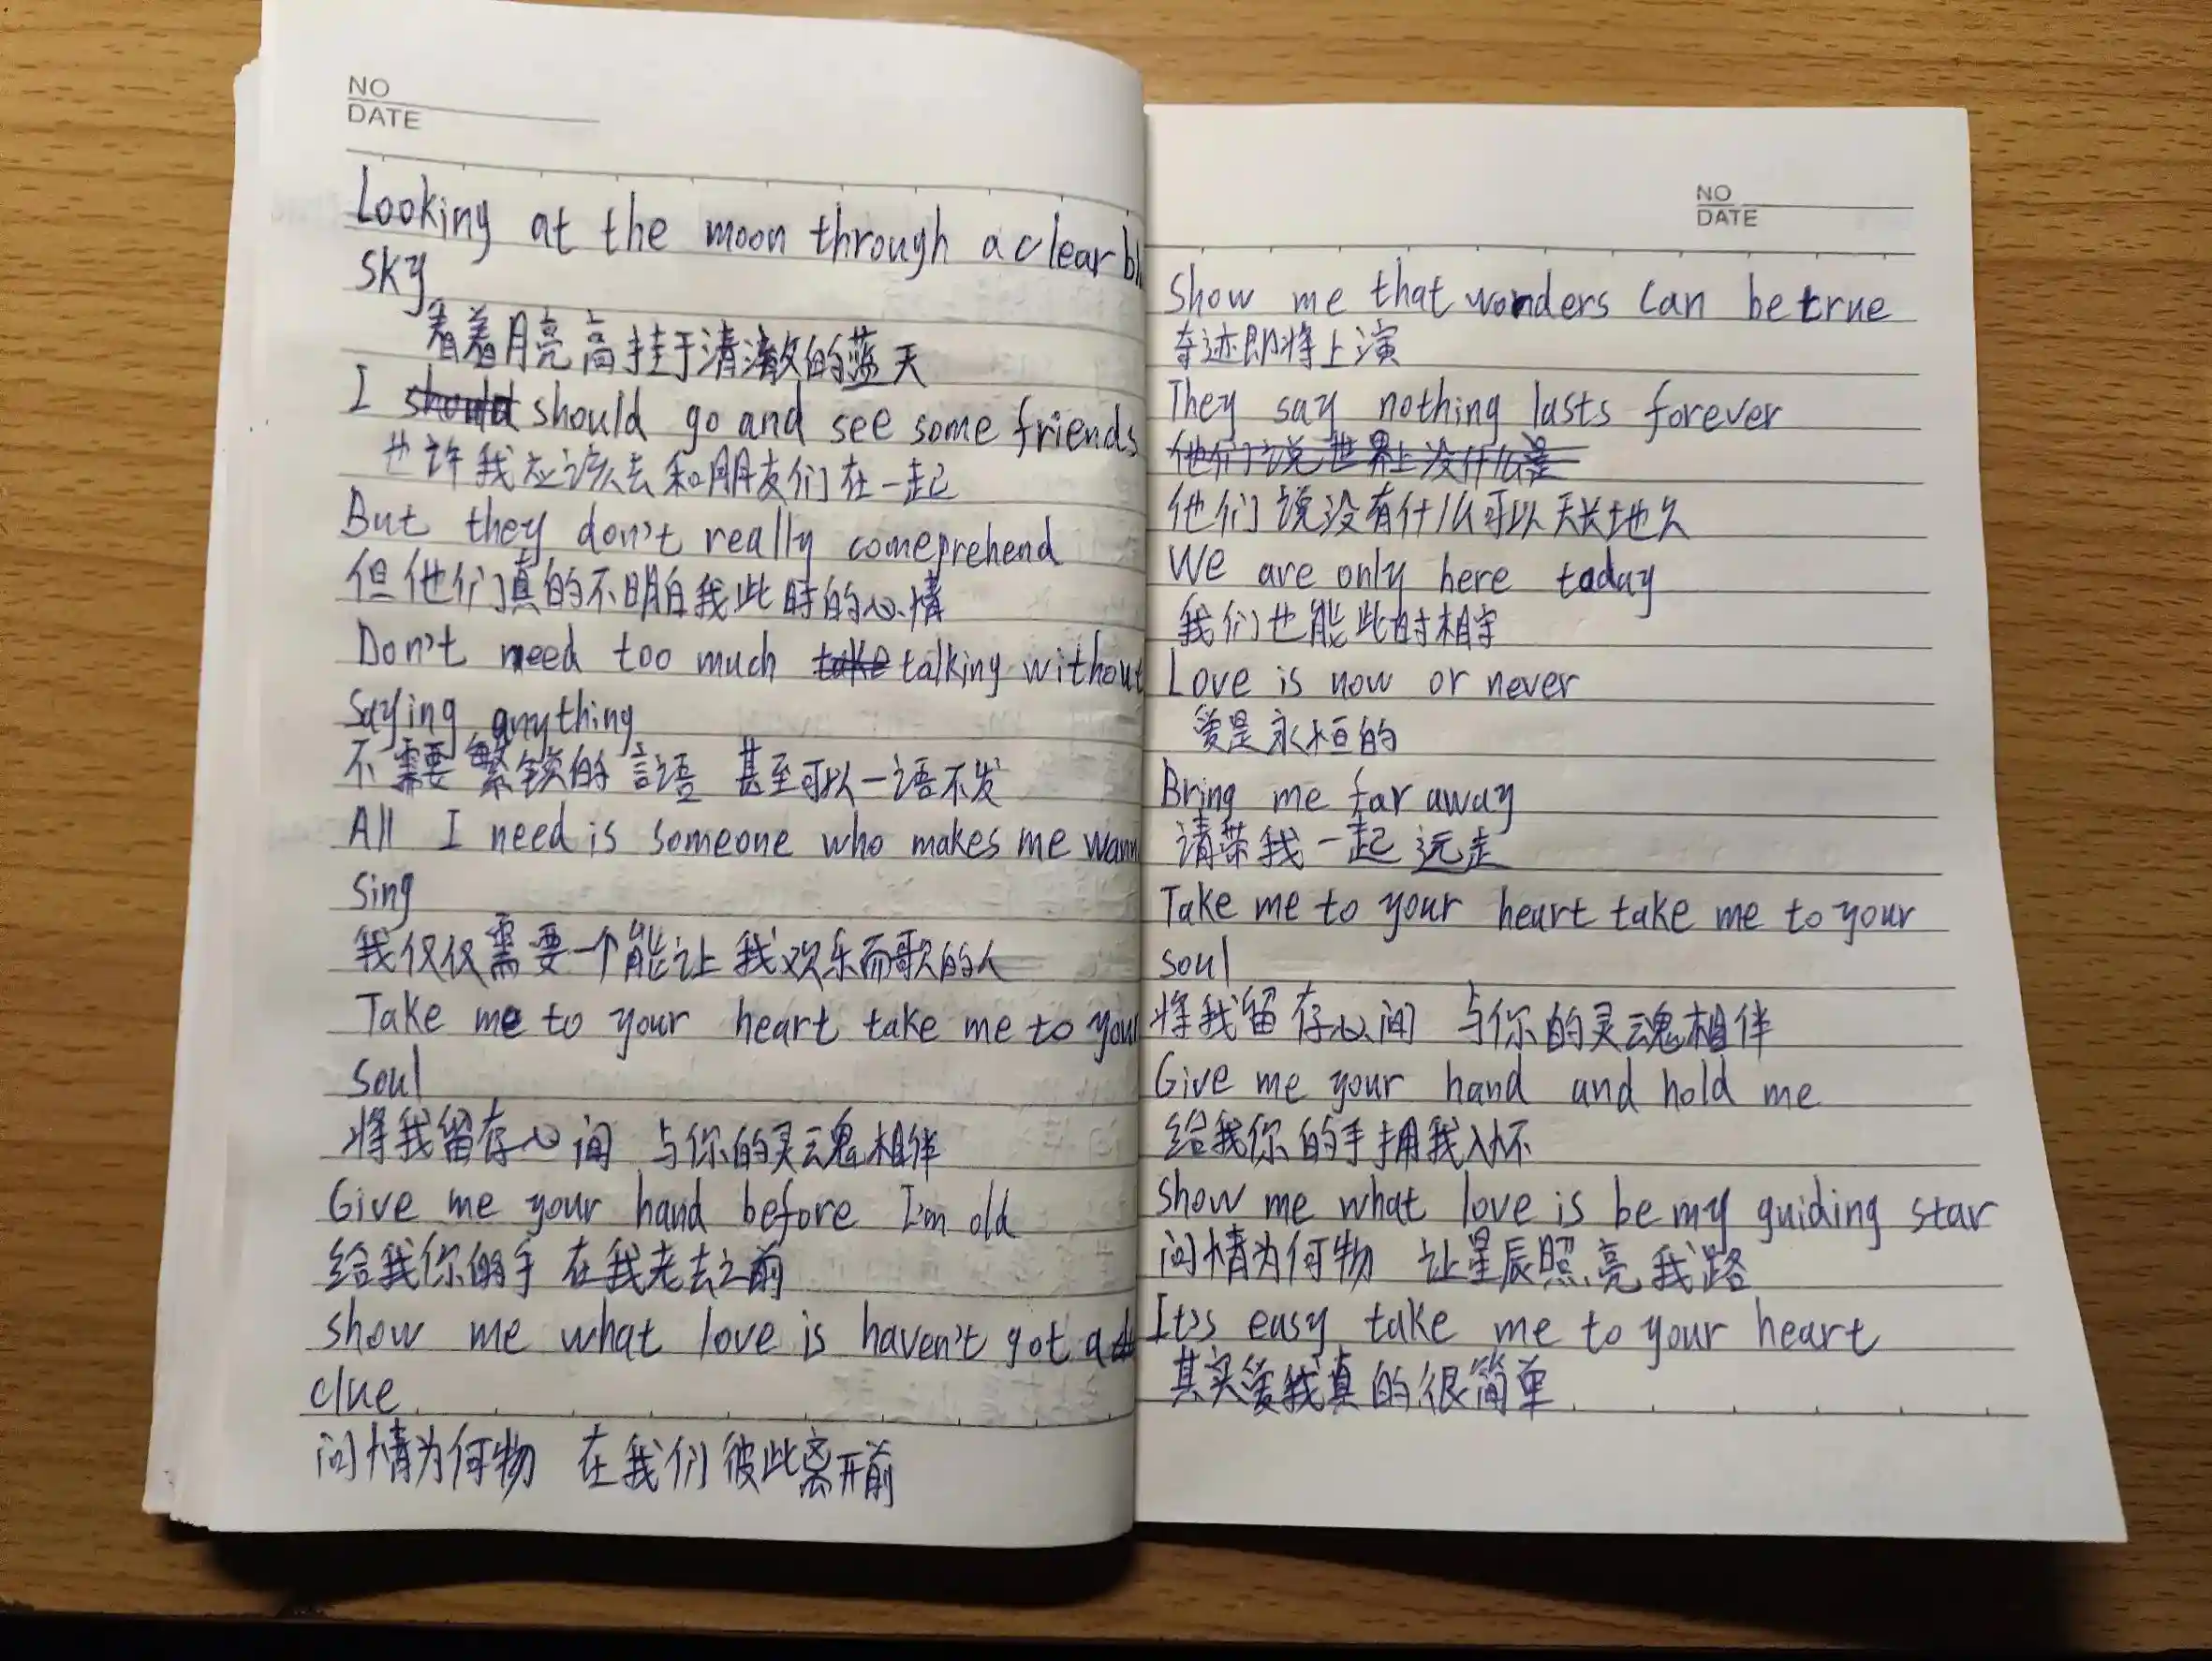 NO
DATE
Looking at the moon through a clear bl
sky
看着月亮高挂于清澈的蓝天
I should should go and see some friends
也许我应该去和朋友们在一起
But they don't really comeprehend
但他们真的不明白我此时的心情
Don't need too much take talking without
Saying anything
不需要繁锁的言语 甚至可以一语不发
All I need is someone who makes me wann
sing
我仅仅需要一个能让我欢乐而歌的人
Take me to your heart take me to your
soul
将我留存心间 与你的灵魂相伴
Give me your hand before I'm old
给我你的手 在我老去之前
show me what love is haven't got a
clue
问情为何物 在我们彼此离开前
NO
DATE
Show me that wonders can be true
奇迹即将上演
They say nothing lasts forever
他们说世界上没什么是
他们说没有什么可以天长地久
We are only here today
我们也能此时相守
Love is now or never
爱是永恒的
Bring me far away
请带我一起远走
Take me to your heart take me to your
soul
将我留存心间 与你的灵魂相伴
Give me your hand and hold me
给我你的手拥我入怀
show me what love is be my guiding star
问情为何物 让星辰照亮我路
It's easy take me to your heart
其实爱我真的很简单